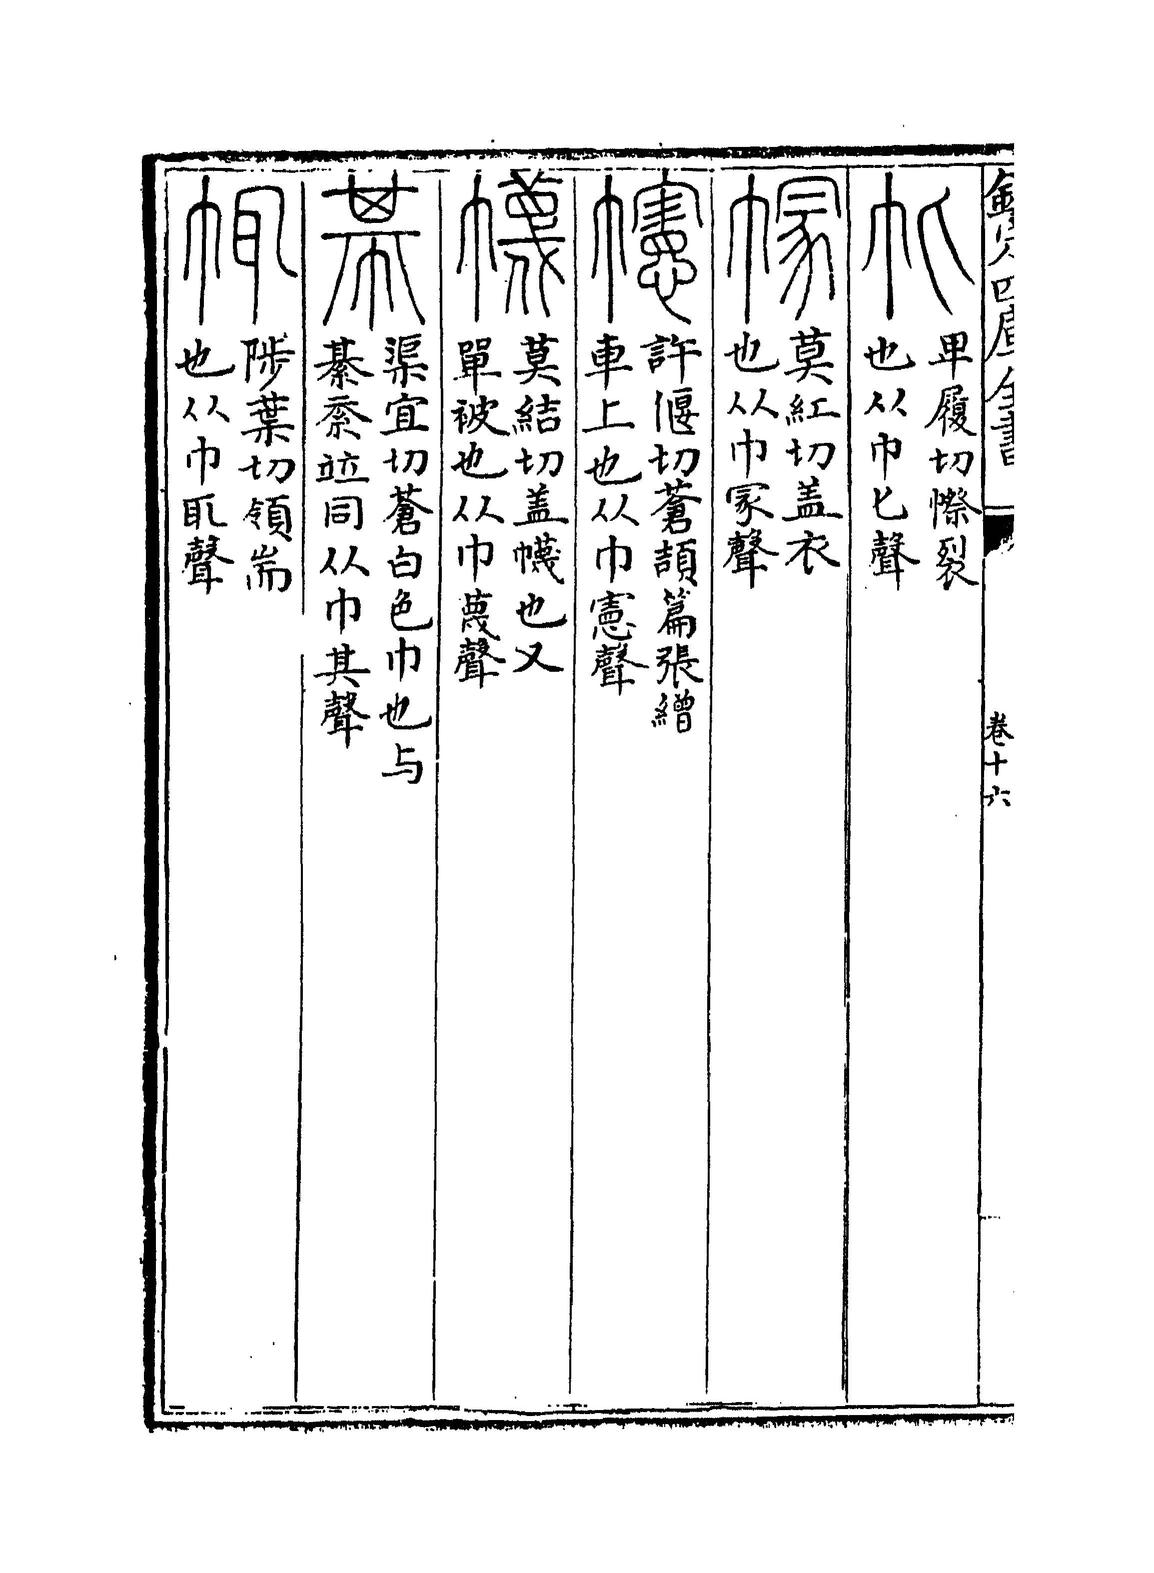 欽定四庫全書
卷十六
㠲
甲履切㡜裂
也从巾匕聲
莫紅切盖衣
也从巾冡聲
幰
許偃切蒼頡篇張繒
車上也从巾憲聲
幭
莫結切盖幭也又
單被也从巾蔑聲
帺
渠宜切蒼白色巾也与
綦竝同从巾其聲
㡇
陟葉切領耑
也从巾耴聲